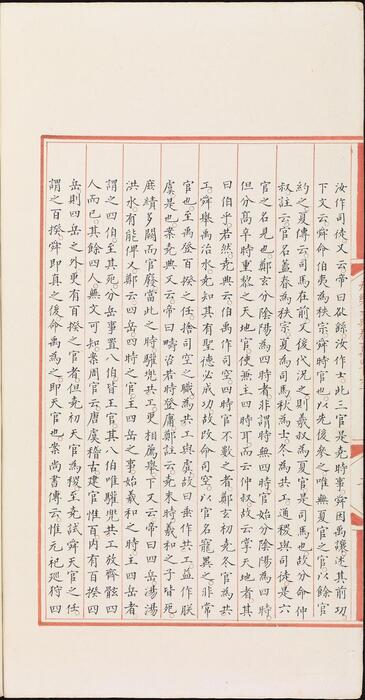 汝作司徒又云帝曰欽餘汝作士此三官是堯時事舜因禹讓述其前功
下文云舜命伯夷為秩宗舜時官也以先後參之唯無夏官之官以餘官
約之夏傳云司馬在前又後代況之則羲叔為夏官是司馬也故分命仲
叔註云官名蓋春為秩宗夏為司馬秋為士冬為共工通稷與司徒是六
官之名見也鄭玄分陰陽為四時者非謂時無四時官始分陰陽為四時
但分高辛時重黎之天地官使兼主四時耳而云仲叔故云掌天地者其
曰伯乎若然堯典云伯禹作司空四時官不數之者鄭云初堯冬官為共
工舜舉禹治水堯知其有聖德必成功故改命司空以官名寵異之非常
官也至禹登百揆之任捨司空之職為共工與虞故曰垂作共工益作朕
虞是也案堯典又云帝曰疇咨若時登庸鄭註云堯末時羲和之子皆死
庶績多闕而官廢當此之時驩兜共工更相薦舉下又云帝曰四岳湯湯
洪水有能俾乂鄭云四岳四時之官主四岳之事始羲和之時主四岳者
謂之四伯至其死分岳事置八伯皆王官其八伯唯驩兜共工放齊鯀四
人而已其餘四人無文可知案周官云唐虞稽古建官惟百內有百揆四
岳則四岳之外更有百揆之官者但堯初天官為稷至堯試舜天官之任
謂之百揆舜即真之後命禹為之即天官也案尚書傳云惟元祀巡狩四